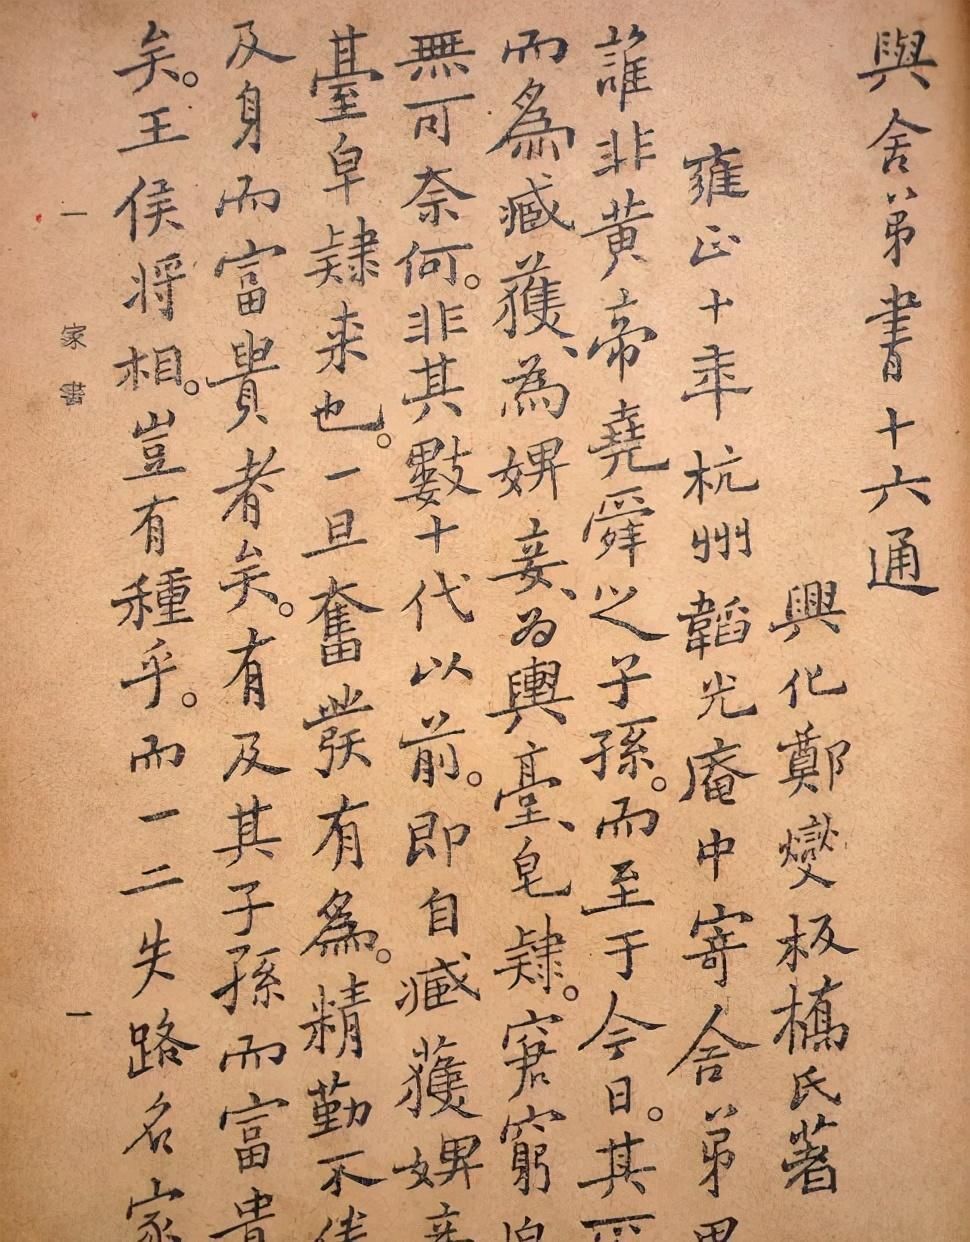 與舍弟書十六通
興化鄭燮板橋氏著
雍正十年杭州韜光庵中寄舍弟墨
誰非黃帝堯舜之子孫。而至于今日。其不
而為臧獲、為婢妾、為輿臺、皂隸。窘窮迫
無可奈何。非其數十代以前。即自臧獲婢妾
臺皁隸来也。一旦奮發有為。精勤不倦
及身而富貴者矣。有及其子孫而富貴
矣。王侯将相。豈有種乎。而一二失路名家
一 家書 一